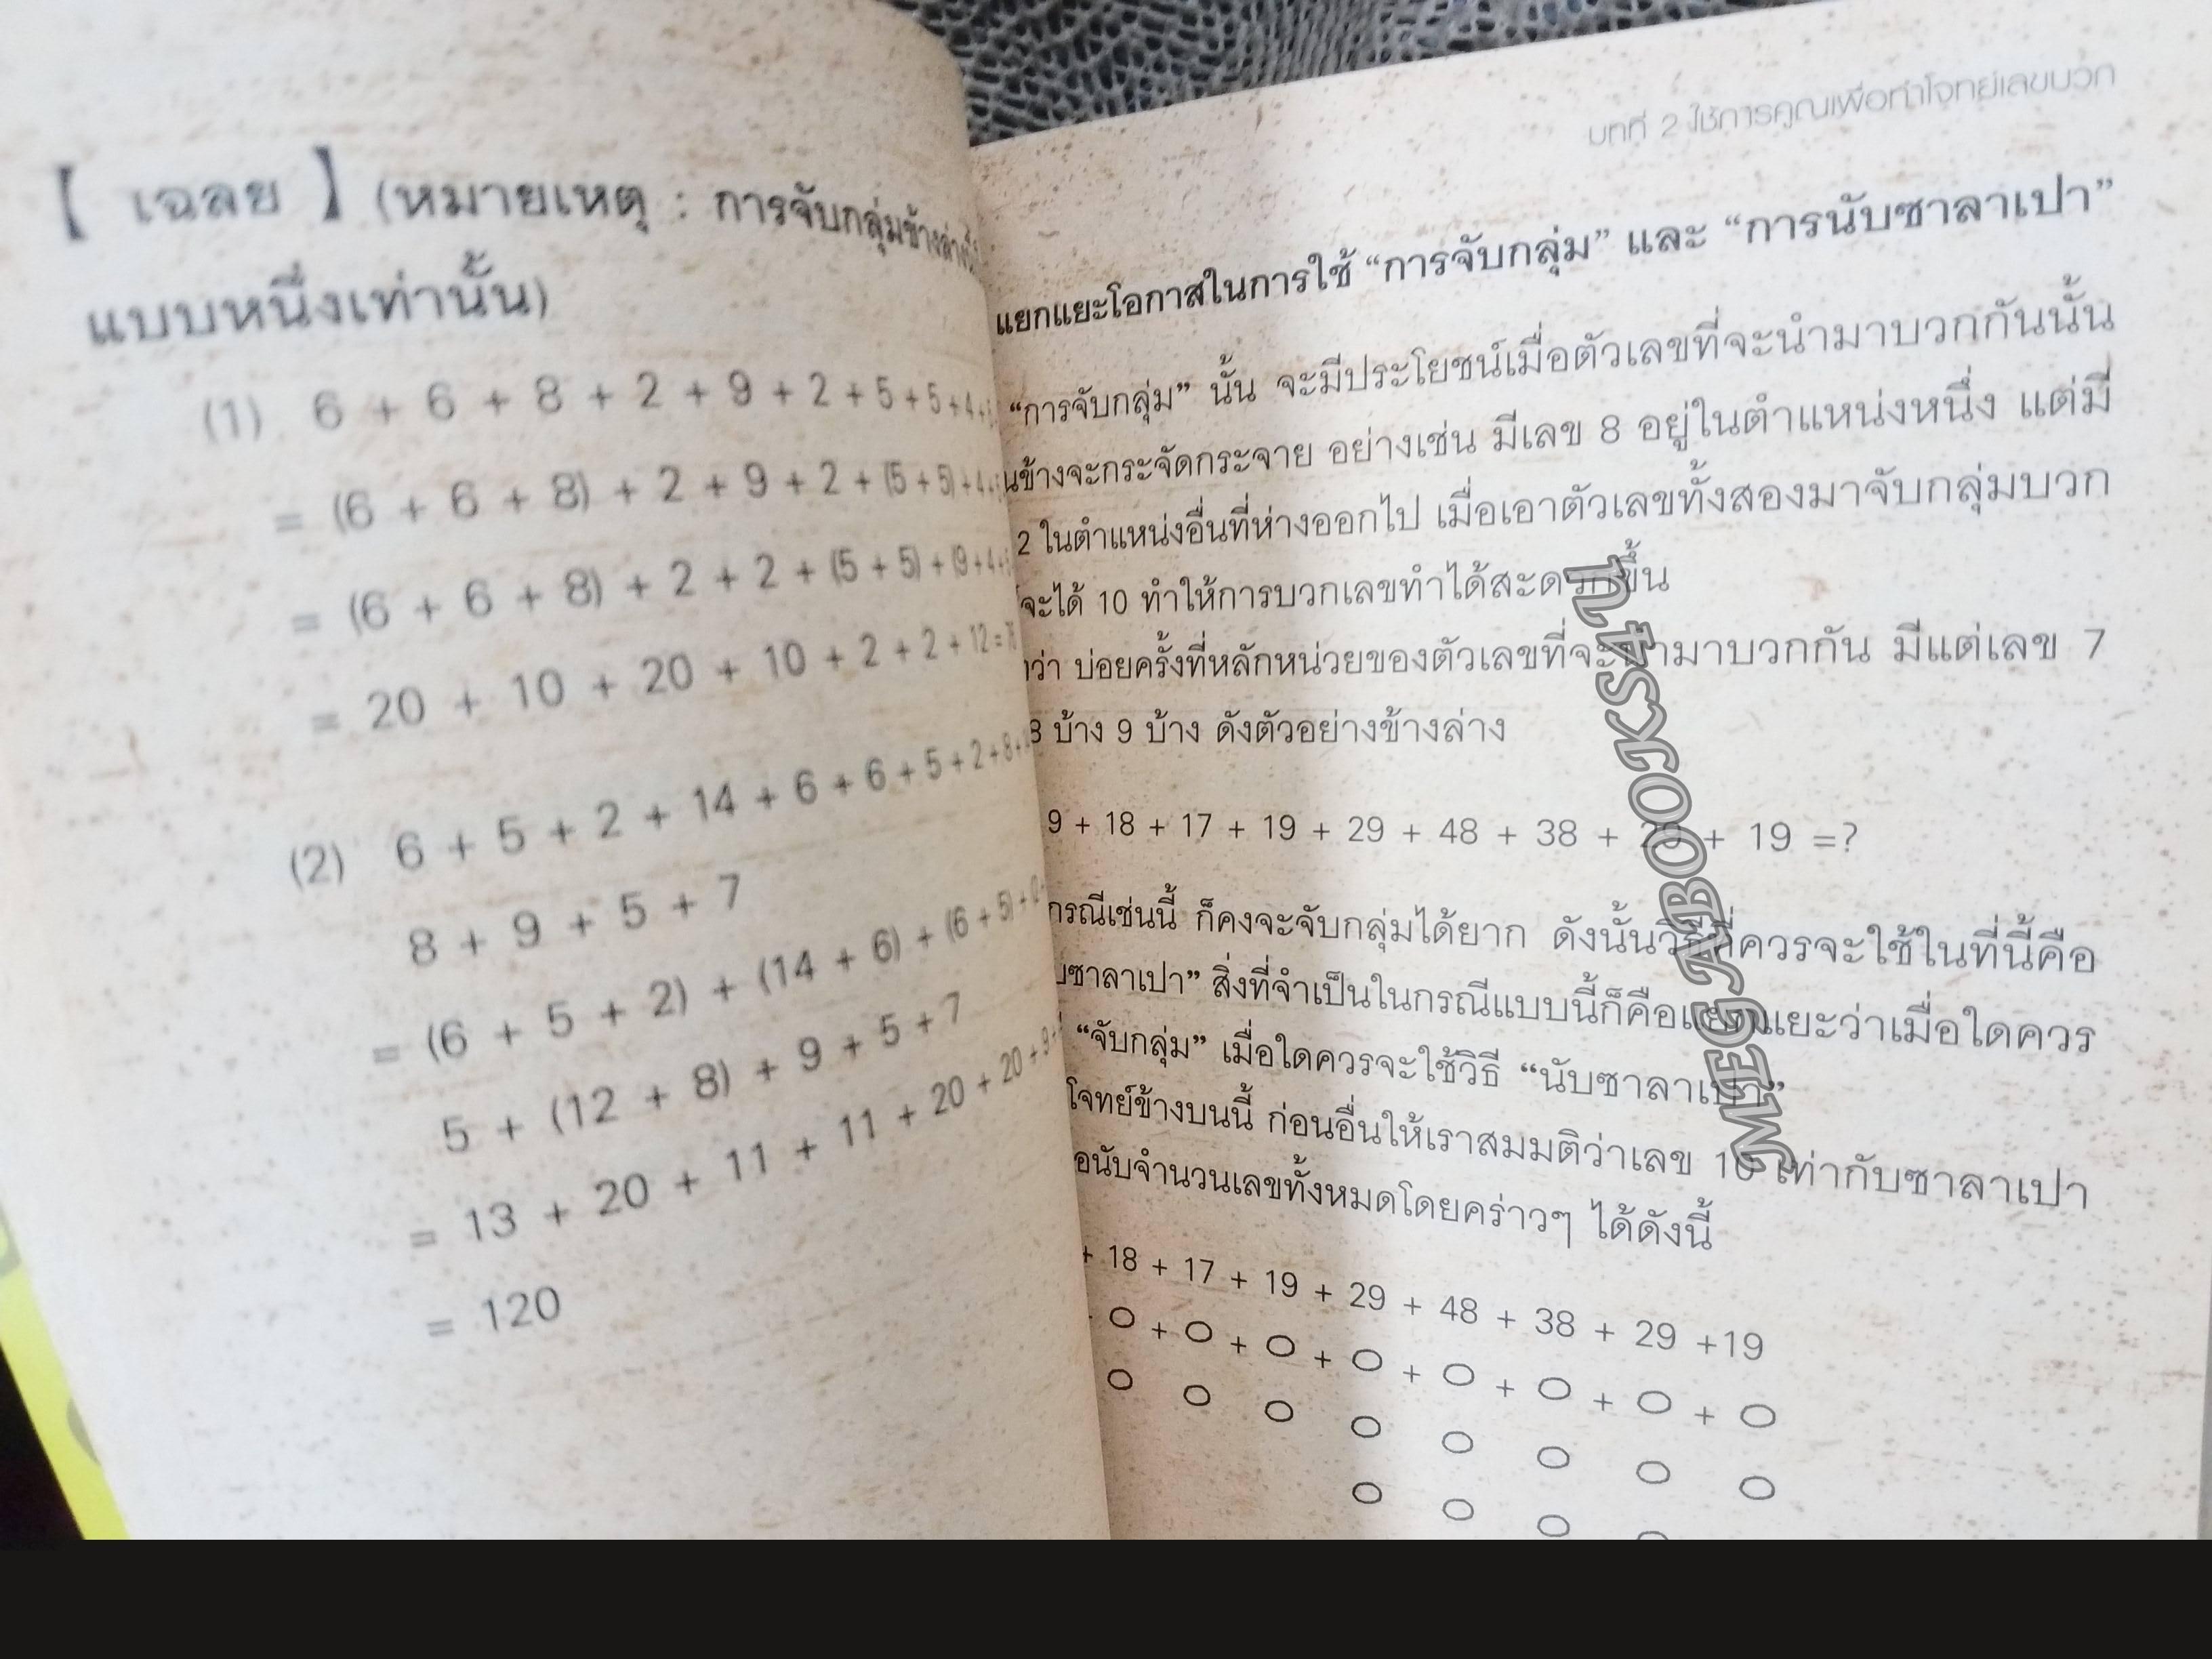 【 เฉลย 】 (หมายเหตุ : การจับกลุ่มข้างล่าง
แบบหนึ่งเท่านั้น)
(1) 6 + 6 + 8 + 2 + 9 + 2 + 5 + 5 + 4 +
= (6 + 6 + 8) + 2 + 9 + 2 + (5 + 5) + 4 +
= (6 + 6 + 8) + 2 + 2 + (5 + 5) + (9 + 4 +
= 20 + 10 + 20 + 10 + 2 + 2 + 12 = 76
(2) 6 + 5 + 2 + 14 + 6 + 6 + 5 + 2 + 8 +
8 + 9 + 5 + 7
= (6 + 5 + 2) + (14 + 6) + (6 + 5) +
5 + (12 + 8) + 9 + 5 + 7
= 13 + 20 + 11 + 11 + 20 + 20 + 9 +
= 120
บทที่ 2 ใช้การคูณเพื่อทำโจทย์เลขบวก
แยกแยะโอกาสในการใช้ “การจับกลุ่ม” และ “การนับซาลาเปา”
“การจับกลุ่ม” นั้น จะมีประโยชน์เมื่อตัวเลขที่จะนำมาบวกกันนั้น
นข้างจะกระจัดกระจาย อย่างเช่น มีเลข 8 อยู่ในตำแหน่งหนึ่ง แต่มี
2 ในตำแหน่งอื่นที่ห่างออกไป เมื่อเอาตัวเลขทั้งสองมาจับกลุ่มบวก
จะได้ 10 ทำให้การบวกเลขทำได้สะดวกขึ้น
ว่า บ่อยครั้งที่หลักหน่วยของตัวเลขที่จะนำมาบวกกัน มีแต่เลข 7
8 บ้าง 9 บ้าง ดังตัวอย่างข้างล่าง
9 + 18 + 17 + 19 + 29 + 48 + 38 + 29 + 19 =?
กรณีเช่นนี้ ก็คงจะจับกลุ่มได้ยาก ดังนั้นวิธีที่ควรจะใช้ในที่นี้คือ
บซาลาเปา” สิ่งที่จำเป็นในกรณีแบบนี้ก็คือแยกแยะว่าเมื่อใดควร
“จับกลุ่ม” เมื่อใดควรจะใช้วิธี “นับซาลาเปา”
โจทย์ข้างบนนี้ ก่อนอื่นให้เราสมมติว่าเลข 10 เท่ากับซาลาเปา
อนับจำนวนเลขทั้งหมดโดยคร่าวๆ ได้ดังนี้
+ 18 + 17 + 19 + 29 + 48 + 38 + 29 +19
O + O + O + O + O + O + O + O
O O O O O O O O
O O O O
MEGABOOKS4U